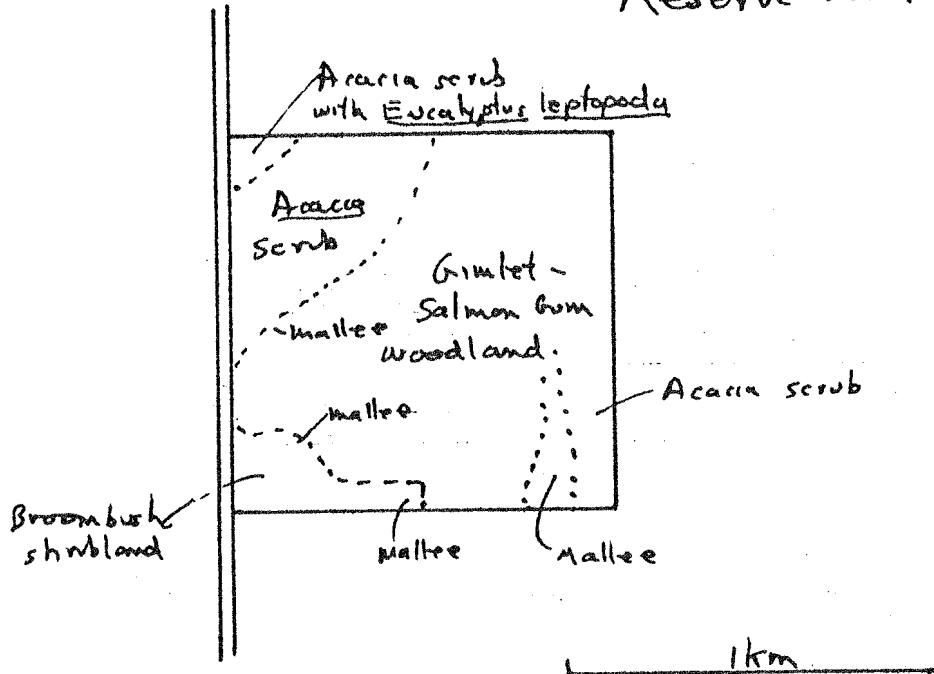 Reserve
Acacia scrub
with Eucalyptus leptopoda
Acacia
scrub
Gimlet -
Salmon Gum
woodland
mallee
Acacia scrub
mallee
Broombush
shrubland
mallee
Mallee
1km